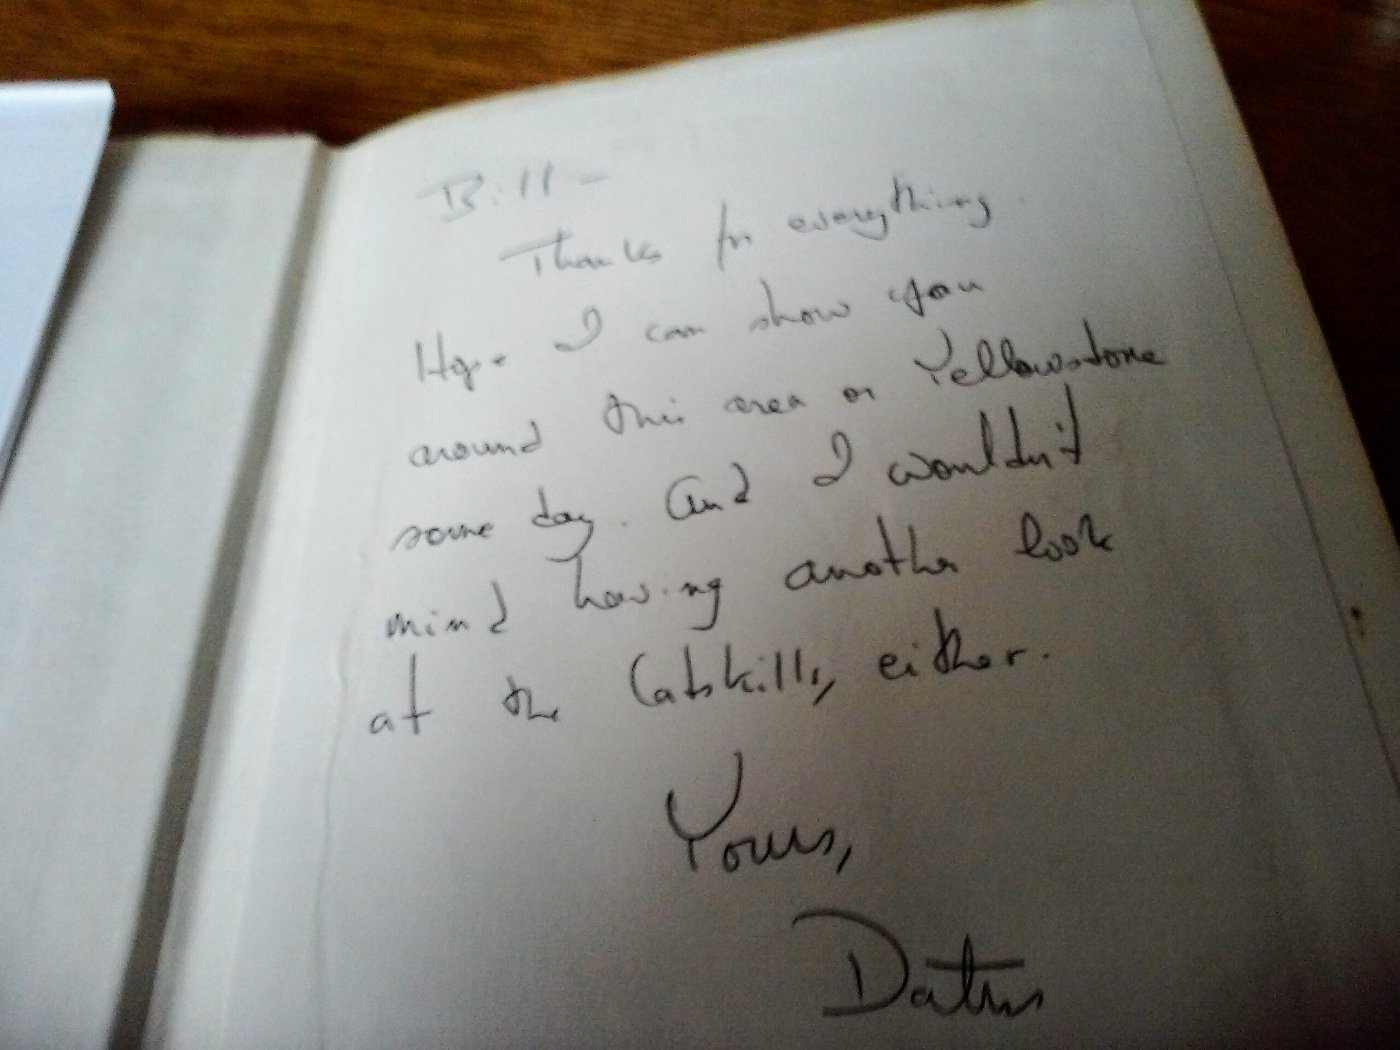 Bill -
Thanks for everything.
Hope I can show you
around this area or Yellowstone
some day. And I wouldn't
mind having another look
at the Catskills, either.
Yours,
Datus